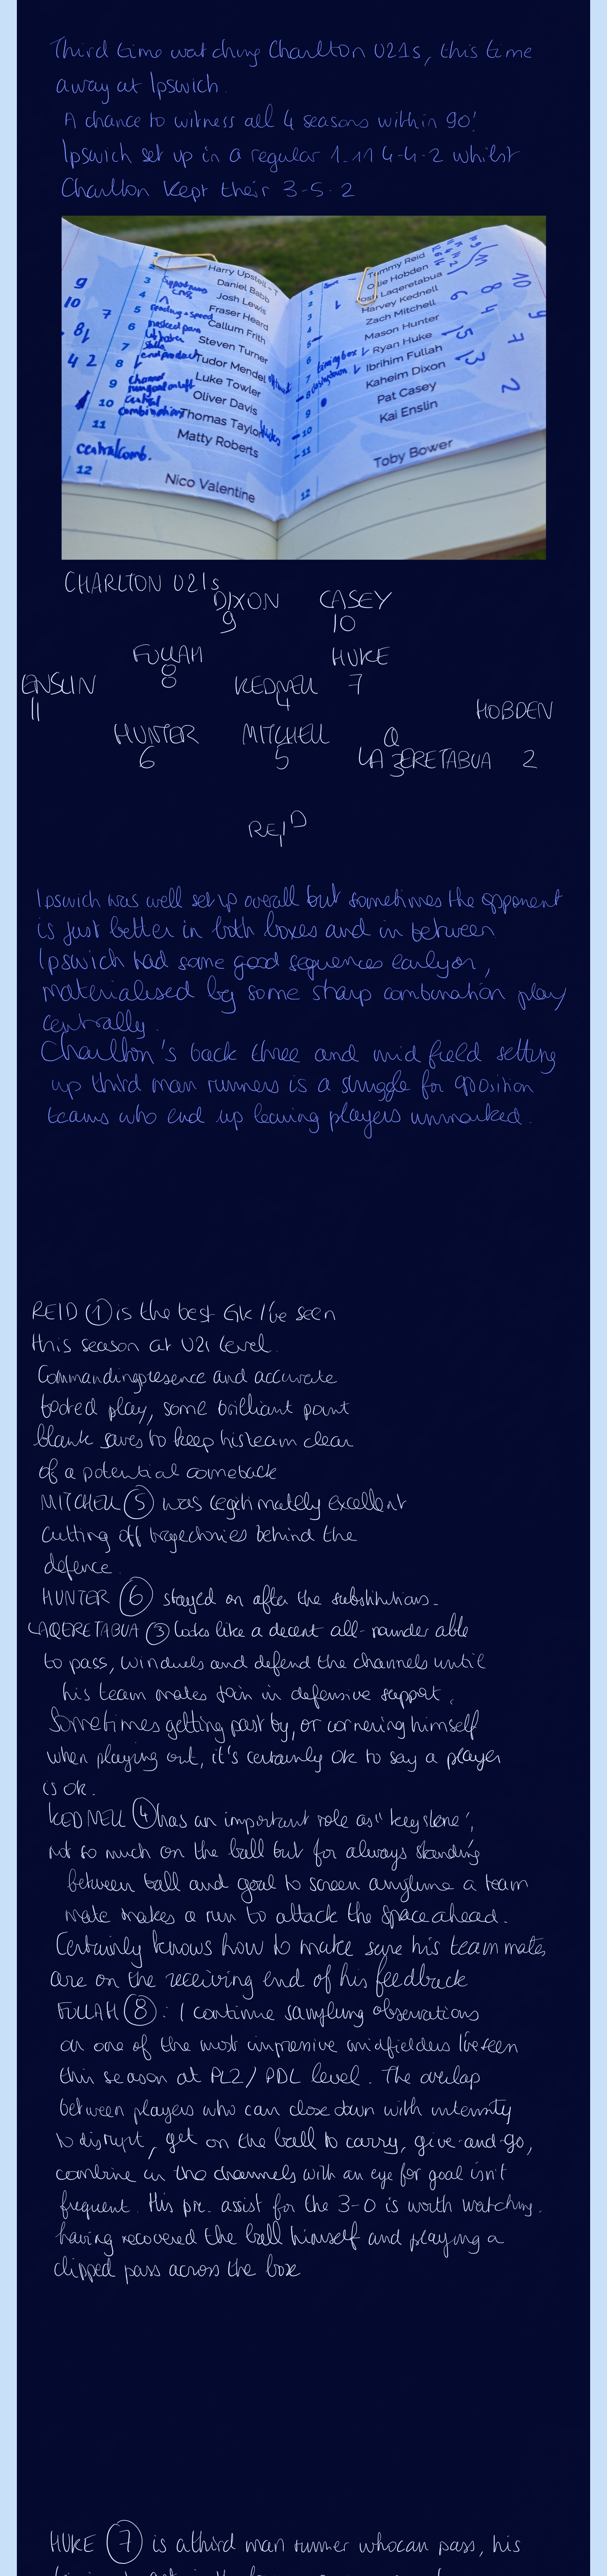 Third time watching Charlton U21s, this time
away at Ipswich.
A chance to witness all 4 seasons within 90!
Ipswich set up in a regular 1-11 4-4-2 whilst
Charlton kept their 3-5-2
Harry Upstell - T
Daniel Babb
Josh Lewis
Fraser Heard
Callum Frith
Steven Turner
Tudor Mendel
Luke Towler
Oliver Davis
Thomas Taylor
Matty Roberts
Nico Valentine
1
2
3
4
5
6
7
8
9
10
11
12
9
10
7
8
4 2
channel
central
combination
central comb.
Tommy Reid
Ollie Hobden
Josh Laqeretabua
Harvey Kednell
Zach Mitchell
Mason Hunter
Ryan Huke
Ibrihim Fullah
Kaheim Dixon
Pat Casey
Kai Enslin
Toby Bower
1
2
3
4
5
6
7
8
9
10
11
12
CHARLTON U21s
DIXON CASEY
9 10
FULLAH HUKE
8 7
ENSLIN KEDNELL
11 4
HOBDEN
2
HUNTER MITCHELL LAQERETABUA
6 5 3
REID
Ipswich was well set up overall but sometimes the opponent
is just better in both boxes and in between
Ipswich had some good sequences early on,
materialised by some sharp combination play
centrally.
Charlton's back three and midfield setting
up third man runners is a struggle for opposition
teams who end up leaving players unmarked.
REID 1 is the best GK I've seen
this season at U21 level.
Commanding presence and accurate
footed play, some brilliant point
blank saves to keep his team clear
of a potential comeback
MITCHELL 5 was legitimately excellent
cutting off trajectories behind the
defence.
HUNTER 6 stayed on after the substitutions.
LAQERETABUA 3 looks like a decent all-rounder able
to pass, win duels and defend the channels until
his team mates join in defensive support.
Sometimes getting past by, or cornering himself
when playing out, it's certainly ok to say a player
is ok.
KEDNELL 4 has an important role as "keystone",
not so much on the ball but for always standing
between ball and goal to screen anytime a team
mate makes a run to attack the space ahead.
Certainly knows how to make sure his team mates
are on the receiving end of his feedback
FULLAH 8: I continue sampling observations
on one of the most impressive midfielders I've seen
this season at PL2/PDL level. The overlap
between players who can close down with intensity
to disrupt, get on the ball to carry, give-and-go,
combine in the channels with an eye for goal isn't
frequent. His pre-assist for the 3-0 is worth watching.
having recovered the ball himself and playing a
clipped pass across the box
HUKE 7 is a third man runner who can pass, his